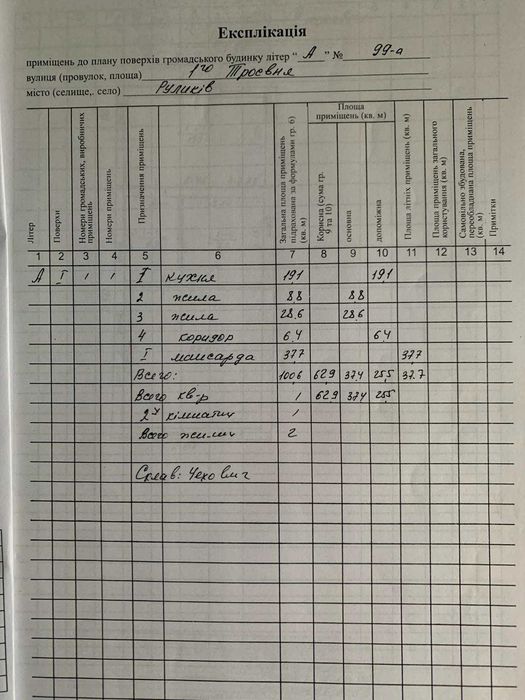 Експлікація
приміщень до плану поверхів громадського будинку літер " А " № 99-а
вулиця (провулок, площа) 1го Троєвня
місто (селище,. село) Руликів
Літер
Поверхи
Номери громадських, виробничих приміщень
Номери приміщень
Призначення приміщень
Загальна площа приміщень підрахована за формулами гр. 6)
Площа приміщень (кв. м)
Корисна (сума гр. 9 та 10)
основна
допоміжна
Площа літніх приміщень (кв. м)
Площа приміщень загального користування (кв. м)
Самовільно збудована, переобладнана площа приміщення (кв. м)
Примітки
1 2 3 4 5 6 7 8 9 10 11 12 13 14
А I 1 1 1 кухня 19,1 19,1
2 жила 8,8 8,8
3 жила 28,6 28,6
4 коридор 6,4 6,4
I мансарда 37,7 37,7
Всего: 100,6 62,9 37,4 25,5 37.7
Всего кв-р 1 62,9 37,4 25,5
2х кімнатн 1
Всего 2